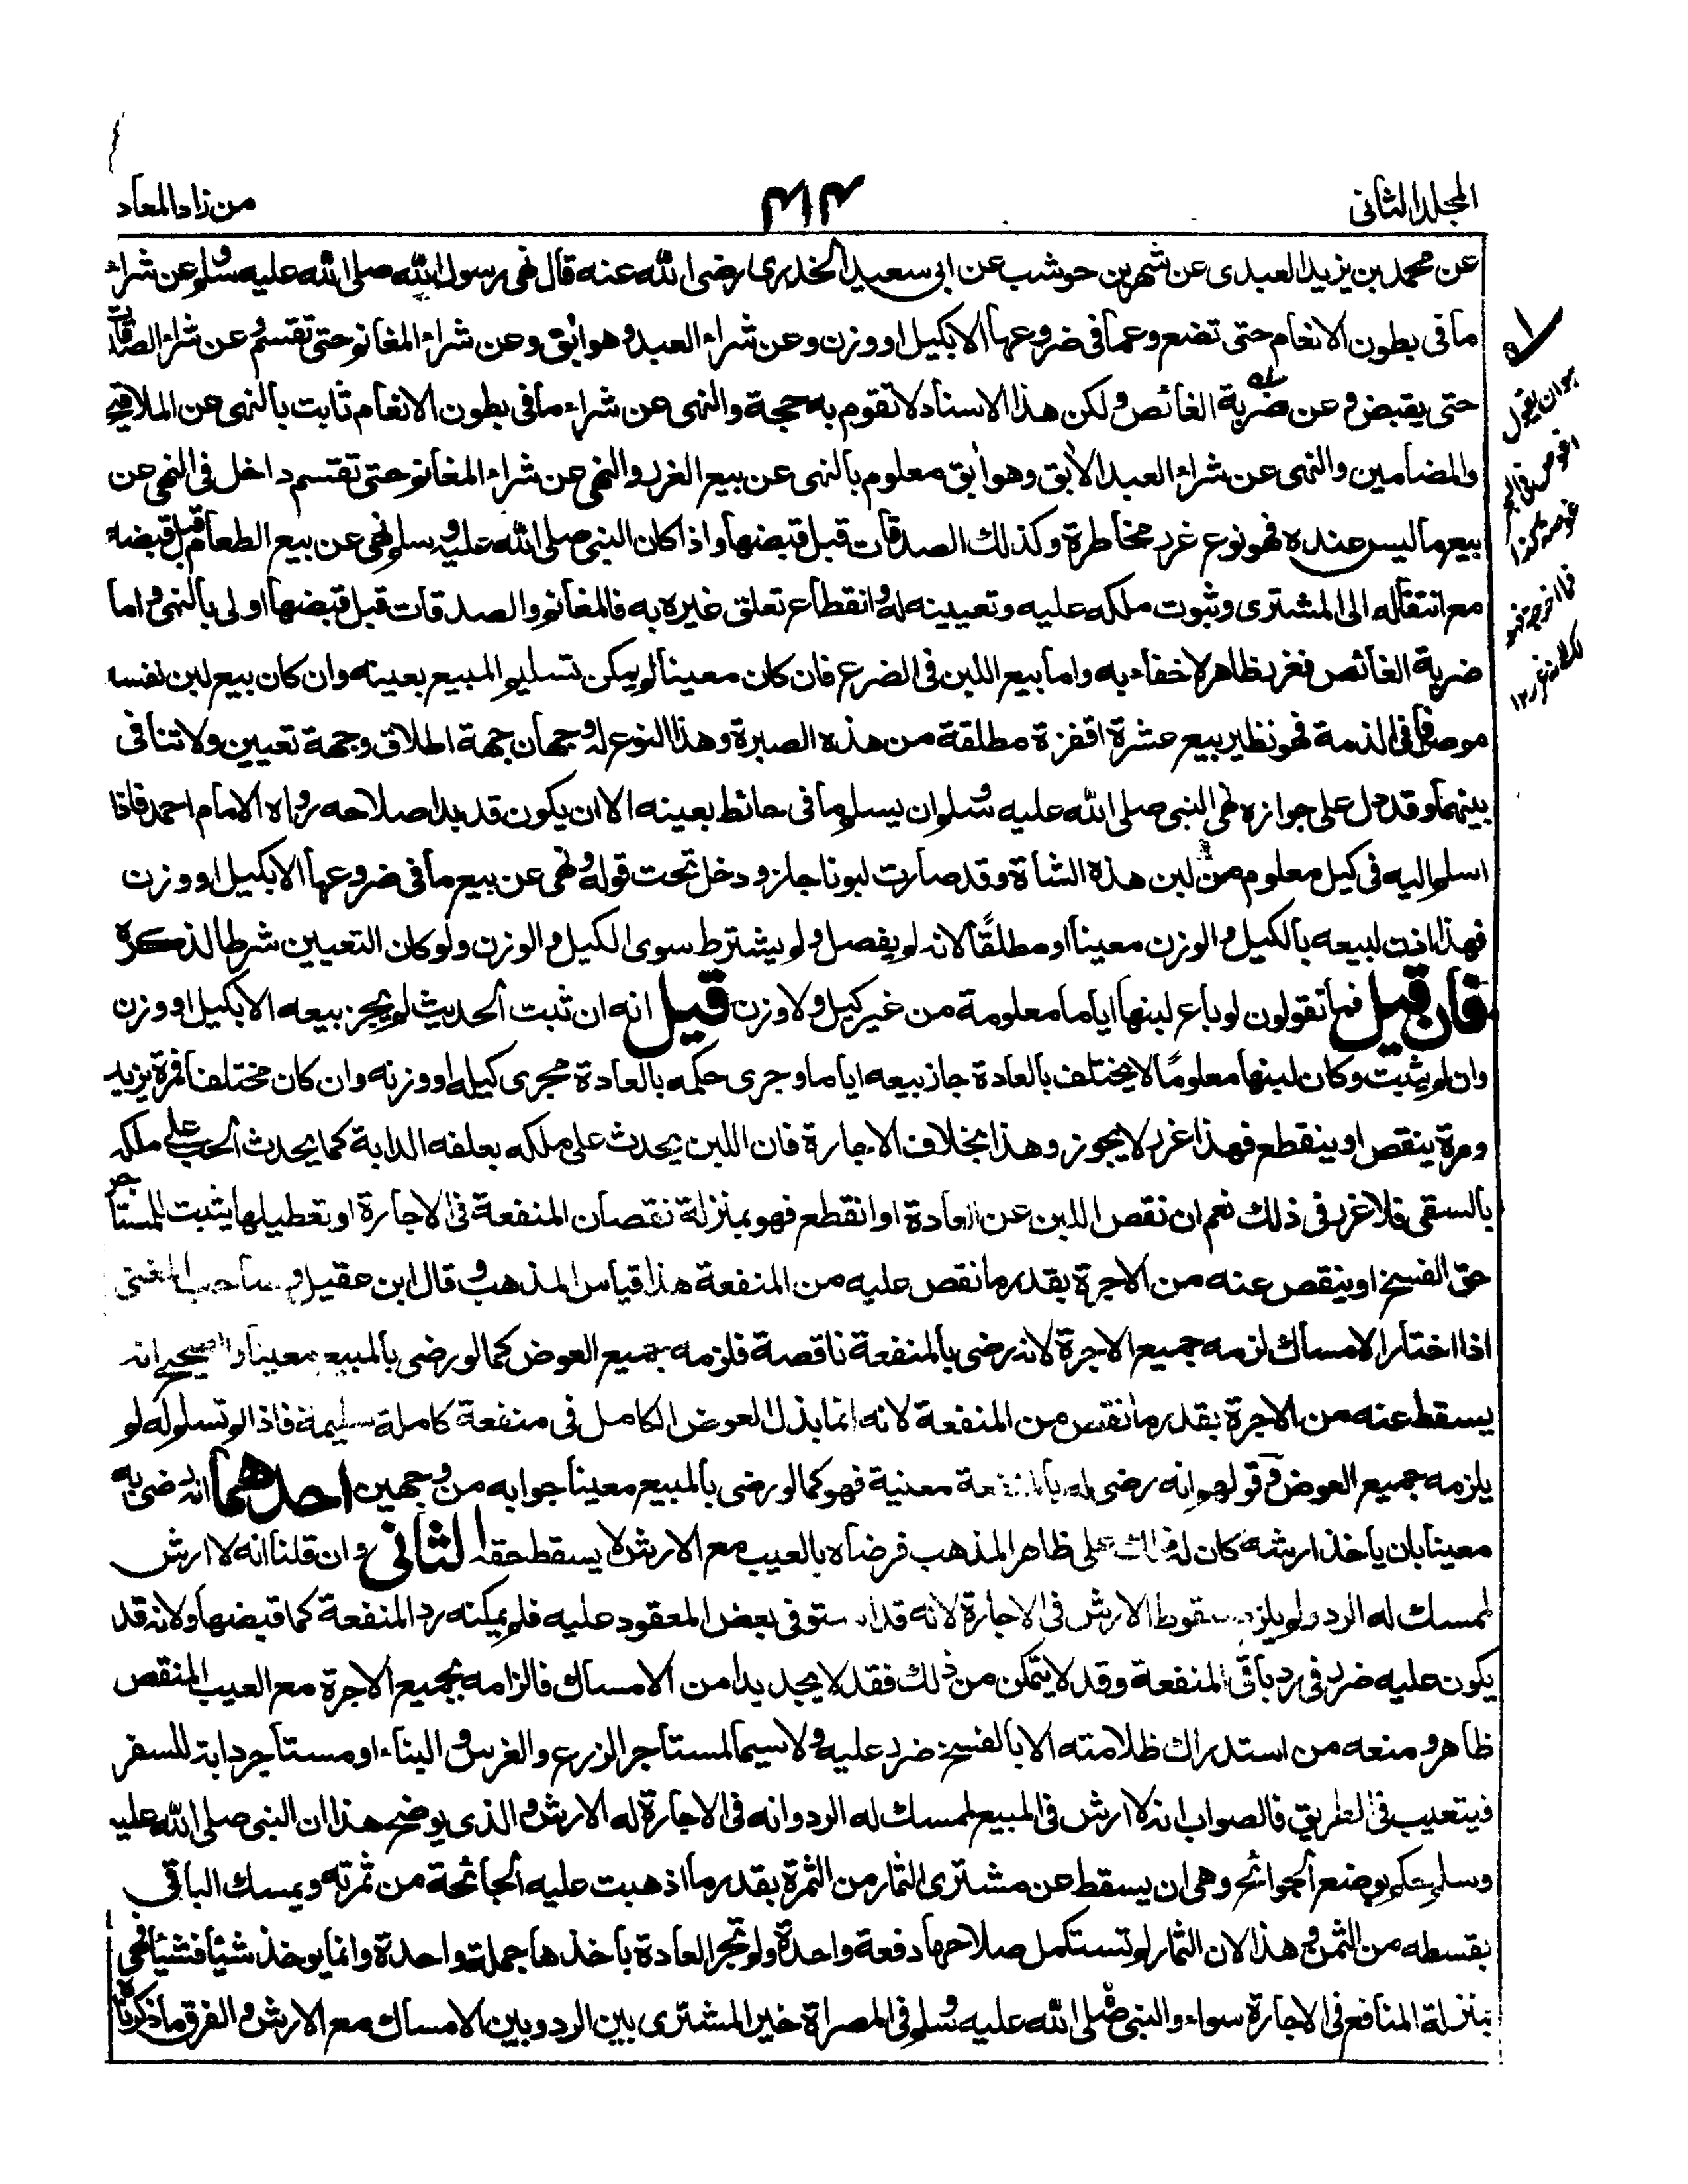 المجلد الثاني
من زاد المعاد
عن محمد بن يزيد العبدى عن شهر بن حوشب عن ابى سعيد الخدرى رضى الله عنه قال نهى رسول الله صلى الله عليه وسلم عن شراء
ما فى بطون الانعام حتى تضع وعما فى ضروعها الا بكيل او وزن وعن شراء العبد وهو ابق وعن شراء المغانم حتى تقسم وعن شراء الصدقات
حتى يقبض وعن ضربة الغائص ولكن هذا الاسناد لا تقوم به حجة والنهى عن شراء ما فى بطون الانعام ثابت بالنهى عن الملاقيح
والمضامين والنهى عن شراء العبد الآبق وهو آبق معلوم بالنهى عن بيع الغرر والنهى عن شراء المغانم حتى تقسم داخل فى النهى عن
بيع ما ليس عنده فهو نوع غرر مخاطرة وكذلك الصدقات قبل قبضها واذا كان النبى صلى الله عليه وسلم نهى عن بيع الطعام قبل قبضه
مع انتقاله الى المشترى وثبوت ملكه عليه وتعيينه له وانقطاع تعلق غيره به فالمغانم والصدقات قبل قبضها اولى بالنهى واما
ضربة الغائص فغرر ظاهر لا خفاء به واما بيع اللبن فى الضرع فان كان معينا لم يمكن تسليم المبيع بعينه وان كان بيع لبن نفسه
موصوفا فى الذمة فهو نظير بيع عشرة اقفزة مطلقة من هذه الصبرة وهذا النوع له وجهان جهة اطلاق وجهة تعيين ولا تنافى
بينهما وقد دل على جوازه نهى النبى صلى الله عليه وسلم ان يسلم ما فى حائط بعينه الا ان يكون قد بدا صلاحه رواه الامام احمد فاذا
اسلم اليه فى كيل معلوم من لبن هذه الشاة وقد صارت لبونا جاز ودخل تحت قوله ونهى عن بيع ما فى ضروعها الا بكيل او وزن
فهذا اذن لبيعه بالكيل والوزن معينا او مطلقًا لانه لم يفصل ولم يشترط سوى الكيل والوزن ولو كان التعيين شرطا لذكره
فان قيل فما تقولون لو باع لبنها اياما معلومة من غير كيل ولا وزن قيل انه ان ثبت الحديث لم يجز بيعه الا بكيل او وزن
وان لم يثبت وكان لبنها معلومًا لا يختلف بالعادة جاز بيعه اياما وجرى حكمه بالعادة مجرى كيله او وزنه وان كان مختلفا فمرة يزيد
ومرة ينقص او ينقطع فهذا غرر لا يجوز وهذا بخلاف الاجارة فان اللبن يحدث على ملكه بعلفه الدابة كما يحدث الحب على ملكه
بالسقى فلا غرر فى ذلك نعم ان نقص اللبن عن العادة او انقطع فهو بمنزلة نقصان المنفعة فى الاجارة او تعطيلها يثبت للمستاجر
حق الفسخ او ينقص عنه من الاجرة بقدر ما نقص عليه من المنفعة هذا قياس المذهب وقال ابن عقيل وصاحب المغنى
اذا اختار الامساك لزمه جميع الاجرة لانه رضى بالمنفعة ناقصة فلزمه جميع العوض كما لو رضى بالمبيع معينا والصحيح انه
يسقط عنه من الاجرة بقدر ما نقص من المنفعة لانه انما بذل العوض الكامل فى منفعة كاملة سليمة فاذا لم تسلم له لم
يلزمه جميع العوض وقولهم انه رضى له بالمنفعة معنية فهو كما لو رضى بالمبيع معينا جوابه من وجهين احدهما انه رضى به
معينا بان ياخذ ارشه كان له ذلك على ظاهر المذهب فرضاه بالعيب مع الارش لا يسقط حقه الثانى وان قلنا انه لا ارش
لممسك له الرد ولم يلزم سقوط الارش فى الاجارة لانه قد استوفى بعض المعقود عليه فلم يمكنه رد المنفعة كما قبضها ولانه قد
يكون عليه ضرر فى رد باقى المنفعة وقد لا يتمكن من ذلك فقد لا يجد بدا من الامساك فالزامه بجميع الاجرة مع العيب المنقص
ظاهر ومنعه من استدراك ظلامته الا بالفسخ ضرر عليه ولا سيما لمستاجر الزرع والغرس والبناء او مستاجر دابة للسفر
فيتعيب فى الطريق فالصواب انه لا ارش فى المبيع لممسك له الرد وانه فى الاجارة له الارش والذى يوضح هذا ان النبى صلى الله عليه
وسلم حكم بوضع الجوائح وهى ان يسقط عن مشترى الثمار من الثمرة بقدر ما اذهبت عليه الجائحة من ثمرته ويمسك الباقى
بقسطه من الثمن وهذا لان الثمار لم تستكمل صلاحها دفعة واحدة ولم تجر العادة باخذها جملة واحدة وانما يوخذ شيئا فشيئا فهى
بمنزلة المنافع فى الاجارة سواء والنبى صلى الله عليه وسلم فى المصراة خير المشترى بين الرد وبين الامساك مع الارش والفرق ما ذكرناه
هو ان يقول
اغوص فى البحر
غوصة بكذا
فما اخرجته فهو
لك لانه غرر ١٢